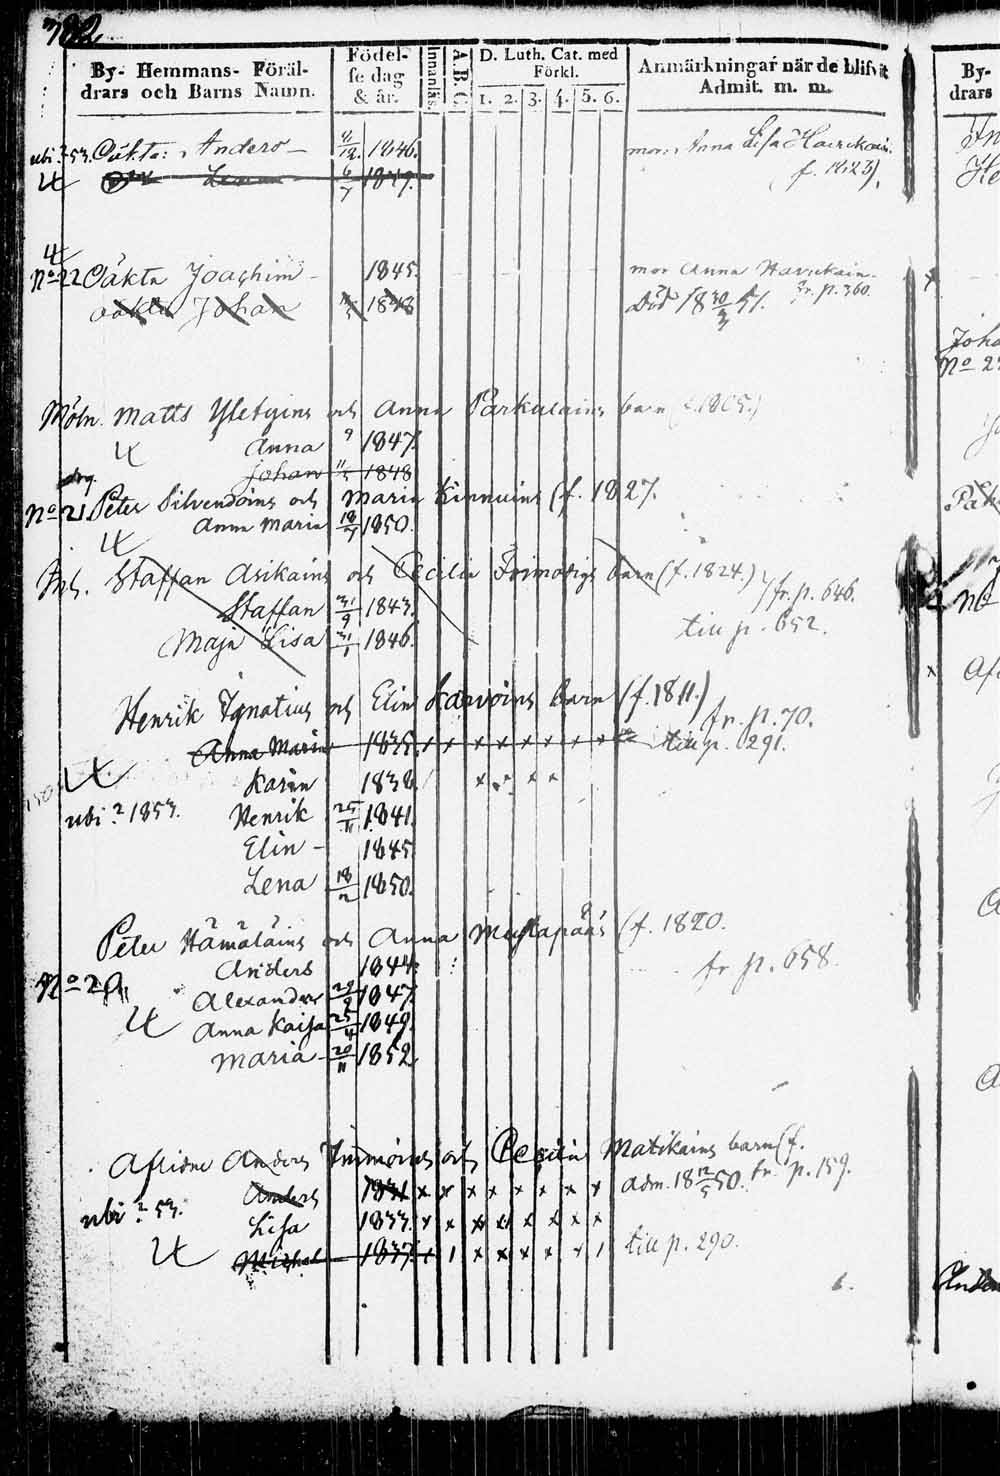 782
By- Hemmans- Föräl-
drars och Barns Namn.
Födel-
se dag
& år.
Innanläs.
A.B.C.
D. Luth. Cat. med
Förkl.
1. 2. 3. 4. 5. 6.
Anmärkningar när de blifvit
Admit. m. m.
By-
drars
ubi? 53. Oäkta: Anders – 1846. mor: Anna Lisa
6/7 1849. (f. 1823).
No 22 Oäkta Joachim – 1845. mor Anna Havukain. fr. p. 360.
oäkta Johan 1848 Död 18 30/3 51.
Matts och Anna Parkulains barn (f. 1805.)
Anna 1847.
Johan 1848
No 21. Peter Silvendoins och Maria Kinnuins (f. 1827.
Anna Maria 18/7 1850.
Inh. Staffan Asikains och Cecilia Frimodigs barn (f. 1824.) fr. p. 646.
Staffan 21/9 1843.
Maja Lisa 31/1 1846. till p. 652.
Henrik Ignatius och Elin Karvoins barn (f. 1811.) fr. p. 70.
Anna Maria 1835. x x x x x x x x till p. 291.
Karin 1838. x x x
ubi? 1853. Henrik 25/11 1841.
Elin – 1845
Lena 18/2 1850.
Peter Hämäläins och Anna Mustapääs (f. 1820.
Anders 1844. fr p. 658.
No 20 Alexander 29/2 1847
Anna Kaisa 25/4 1849.
Maria – 20/11 1852
Aflidne Anders Immoins och Cecilia Matikains barn (f.
Anders 1831 x x x x x x x x adm. 18 12/5 50. fr. p. 159.
ubi? 53. Lisa 1833. x x x x x x x x
Michel 1837. x 1 x x x x x 1 till p. 290.